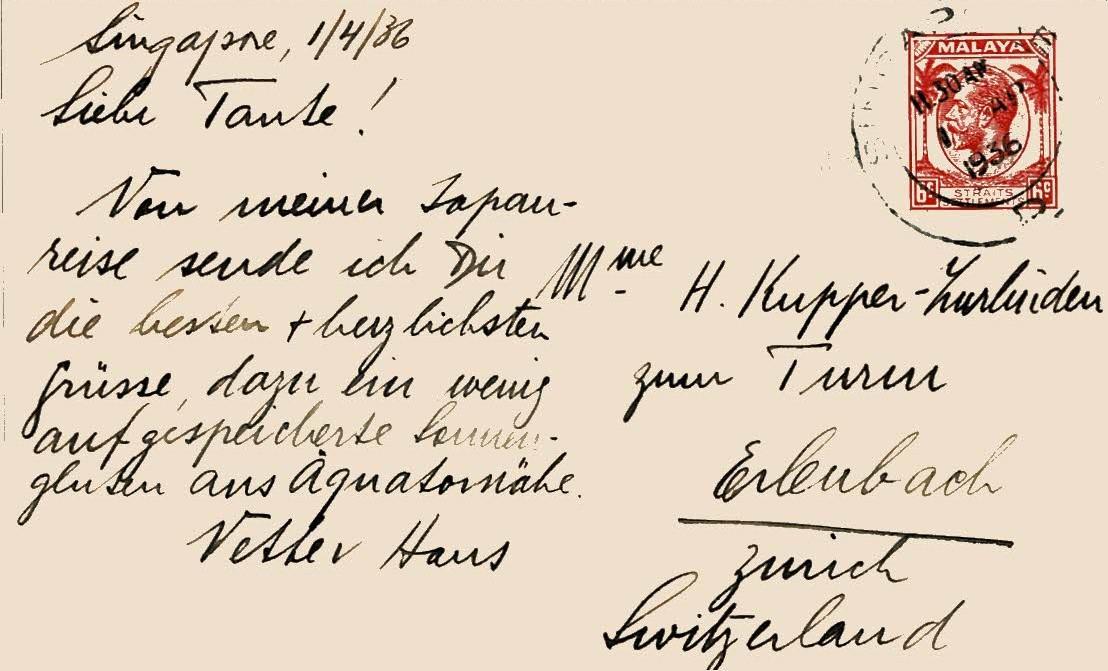 Singapore, 1/4/36
Liebe Tante!
Von meiner Japan-
reise sende ich Dir
die besten + herzlichsten
Grüsse, dazu ein wenig
aufgespeicherte Sonnen-
gluten aus Äquatornähe.
Vetter Hans
MALAYA
11.30 AM
1 AP
1936
6c STRAITS 6c
SETTLEMENTS
Mme H. Kupper-Zurlinden
zum Turm
Erlenbach
Zürich
Switzerland